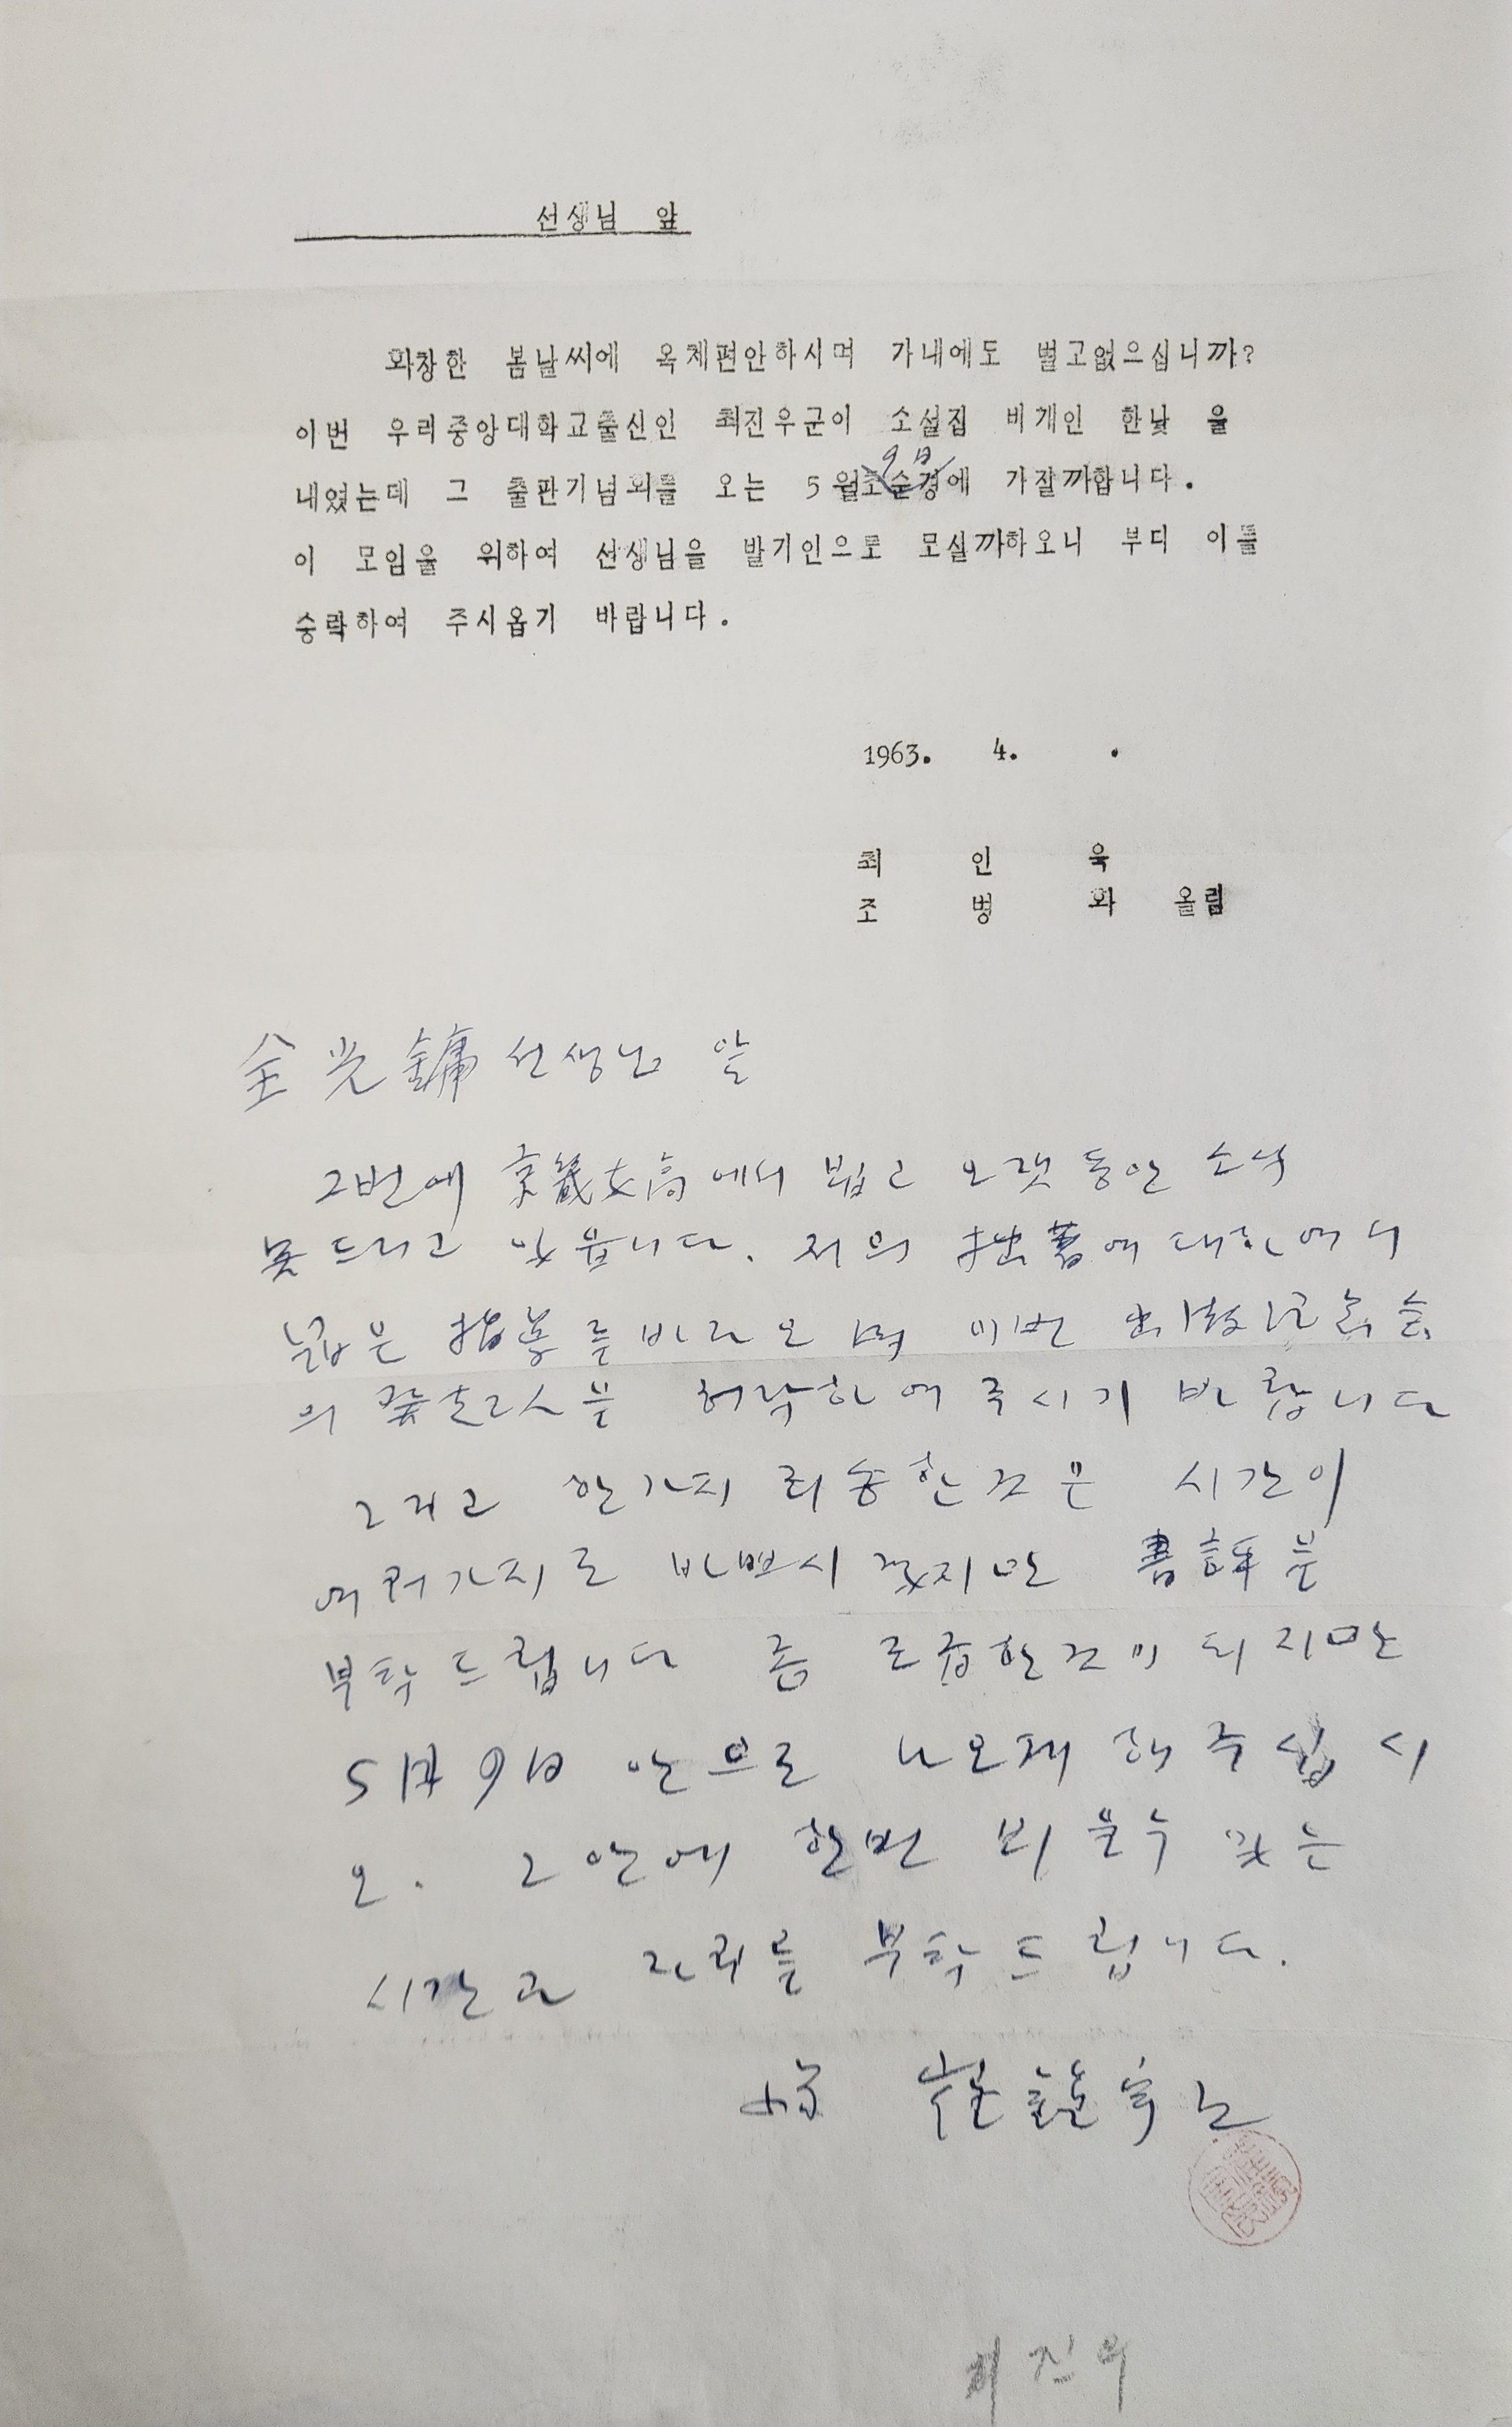 선생님 앞
화창한 봄날씨에 옥체편안하시며 가내에도 별고없으십니까?
이번 우리중앙대학교출신인 최진우군이 소설집 비개인 한낮 을
9日
내였는데 그 출판기념회를 오는 5월초순경에 가질까합니다.
이 모임을 위하여 선생님을 발기인으로 모실까하오니 부디 이를
승락하여 주시옵기 바랍니다.
1963. 4. .
최 인 욱
조 병 화 올림
全光鏞 선생님 앞
그번에 京畿女高에서 뵙고 오랫동안 소식
못드리고 있읍니다. 저의 拙著에 대하여서
넓은 指導를 바라오며 이번 出版記念会
의 發起人을 허락하여 주시기 바랍니다
그리고 한가지 죄송한것은 시간이
여러가지로 바쁘시겠지만 書評을
부탁드립니다 좀 조급한것이 되지만
5月 9日 안으로 나오게 해주십시
오. 그안에 한번 뵈을수 있는
시간과 자리를 부탁드립니다.
崔鎭宇
최진우